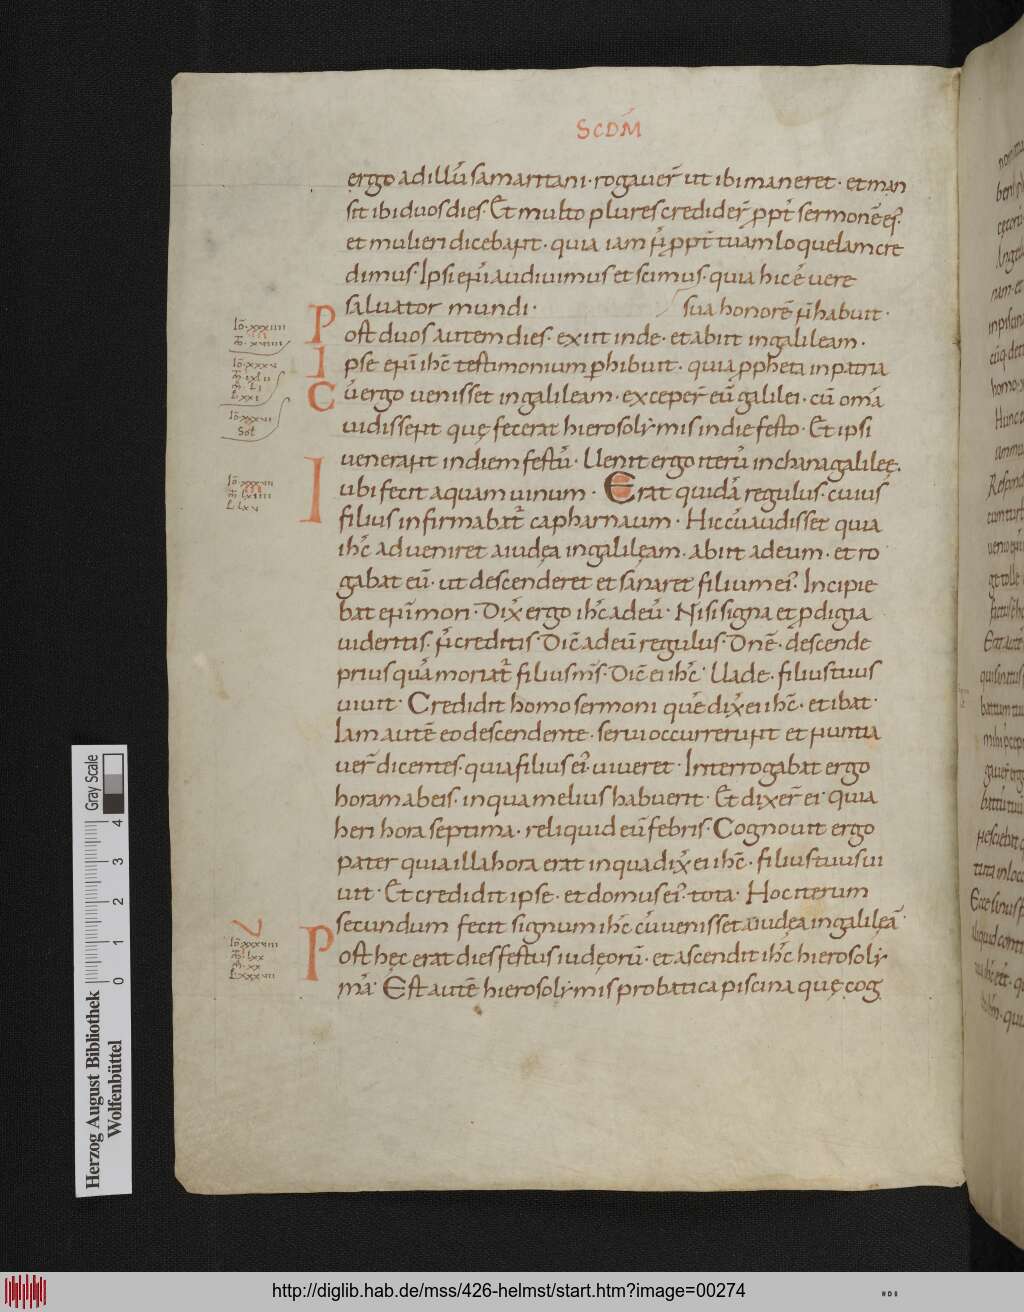 SCDM̄
ergo ad illū samaritani · rogauer̄ ut ibi maneret · et man
sit ibi duos dies · Et multo plures credider̄ ppt̄ sermonē ei᷒ ·
et mulieri dicebant · quia iam n̄ ppt̄ tuam loquelam cre
dimus · Ipsi eni audiuimus et scimus · quia hic ē uere
saluator mundi · sua honorē n̄ habuit ·
Post duos autem dies · exiit inde · et abiit in galileam ·
Ipse eni ih̄c testimonium ꝑhibuit · quia ꝓpheta in patria
Cū ergo uenisset in galileam · exceper̄ eū galilei · cū om̄a
uidissent quę fecerat hierosolymis in die festo · Et ipsi
uenerant in diem festū · Uenit ergo iterū in chana galileę ·
ubi fecit aquam uinum · Erat quidā regulus · cuius
filius infirmabat᷑ capharnaum · Hic cū audisset quia
ih̄c adueniret a iudęa in galilęam · abiit ad eum · et ro
gabat eū · ut descenderet et sanaret filium ei᷒ · Incipie
bat eni mori · Dix̄ ergo ih̄c ad eū · Nisi signa et ꝓdigia
uideritis · n̄ creditis · Dic̄ ad eū regulus · Dn̄e · descende
prius quā moriat᷑ filius m̄s · Dic̄ ei ih̄c · Uade · filius tuus
uiuit · Credidit homo sermoni quē dix̄ ei ih̄c · et ibat ·
Iam autē eo descendente · serui occurrerunt et nuntia
uer̄ dicentes · quia filius ei᷒ uiueret · Interrogabat ergo
horam ab eis · in qua melius habuerit · Et dixer̄ ei · quia
heri hora septima · reliquid eū febris · Cognouit ergo
pater quia illa hora erat in qua dix̄ ei ih̄c · filius tuus ui
uit · Et credidit ipse · et domus ei᷒ · tota · Hoc iterum
secundum fecit signum ih̄c cū uenisset a iudęa in galileā ·
Post hęc erat dies festus iudęorū · et ascendit ih̄c hierosoly
mā · Est autē hierosolymis probatica piscina quę cog
Iō · xxxiiii
Iō · xxxv
L · xxi
Iō · xxxvi
Sol
Iō · xxxvii
L · lxv
Iō · xxxviii
M̄ · lxx
M̄ · xx
L · xxxvii
Gray Scale
0 1 2 3 4
Herzog August Bibliothek
Wolfenbüttel
http://diglib.hab.de/mss/426-helmst/start.htm?image=00274